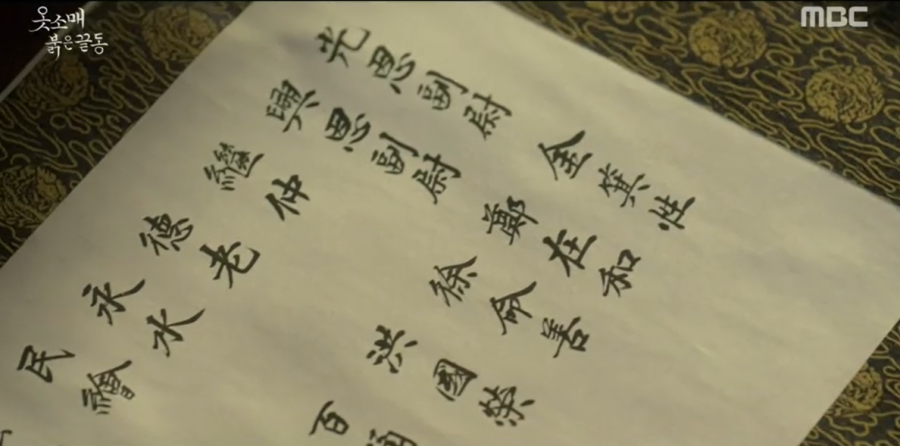 옷소매
붉은끝동
MBC
光恩副尉 金箕性
興恩副尉 鄭在和
繼仲 徐命善
德老 洪國榮
永水 百
民繪